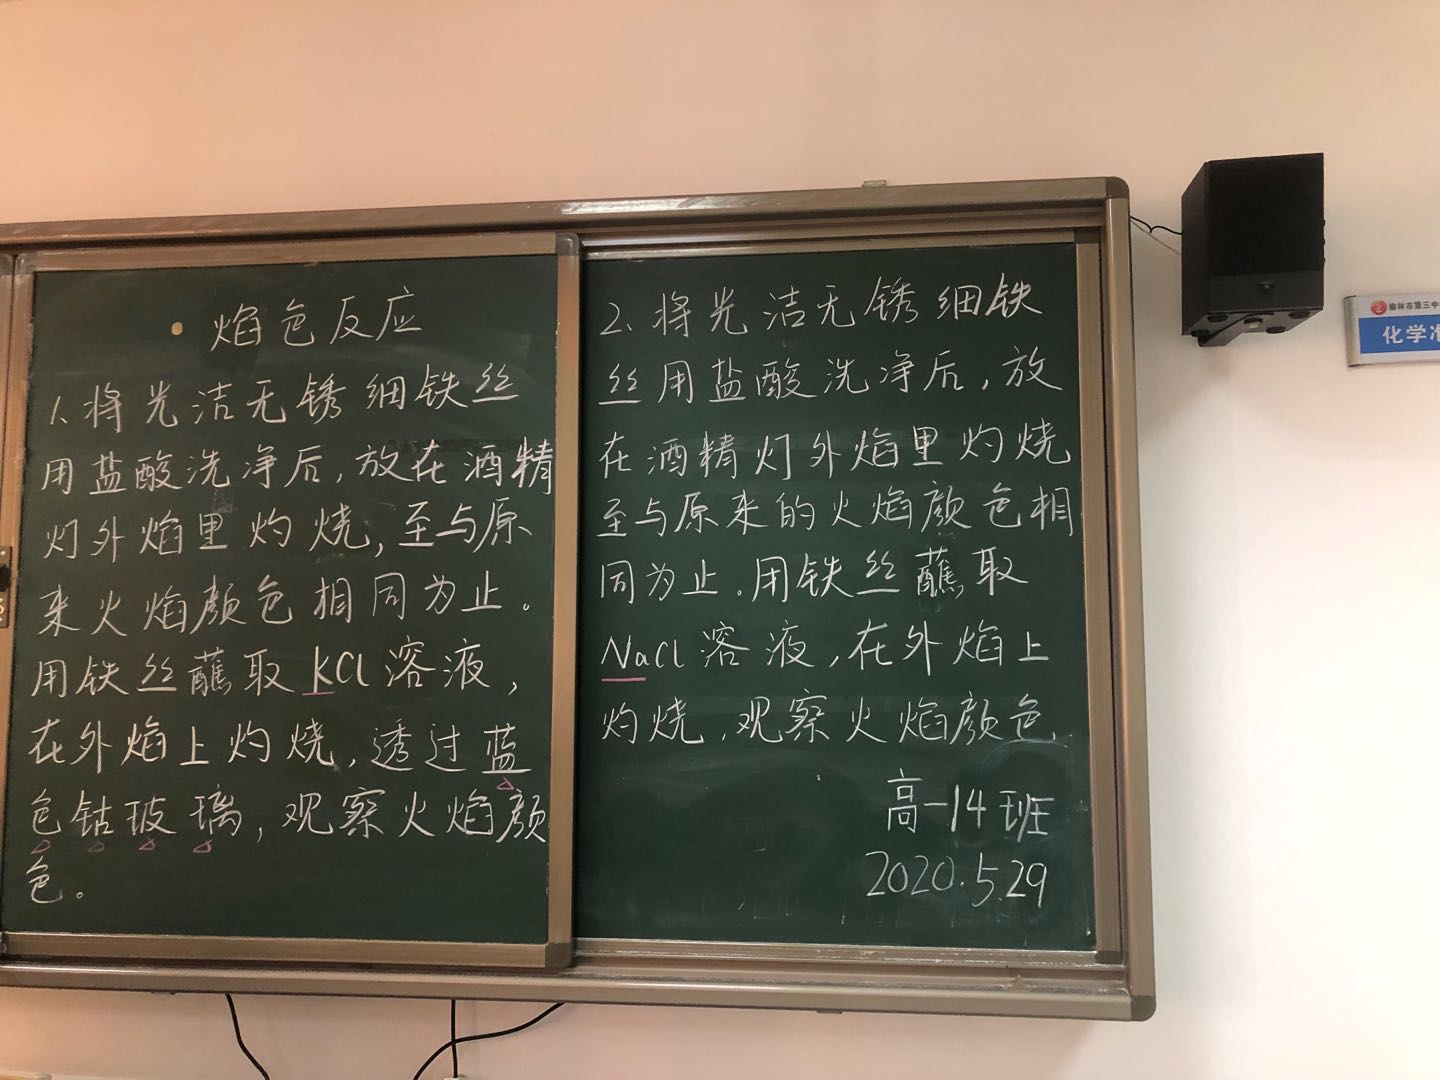 焰色反应
1、将光洁无锈细铁丝
用盐酸洗净后，放在酒精
灯外焰里灼烧，至与原
来火焰颜色相同为止。
用铁丝蘸取KCl溶液，
在外焰上灼烧，透过蓝
色钴玻璃，观察火焰颜
色。
2、将光洁无锈细铁
丝用盐酸洗净后，放
在酒精灯外焰里灼烧
至与原来的火焰颜色相
同为止。用铁丝蘸取
NaCl溶液，在外焰上
灼烧，观察火焰颜色
高一14班
2020.5.29
榆林市第三中
化学准